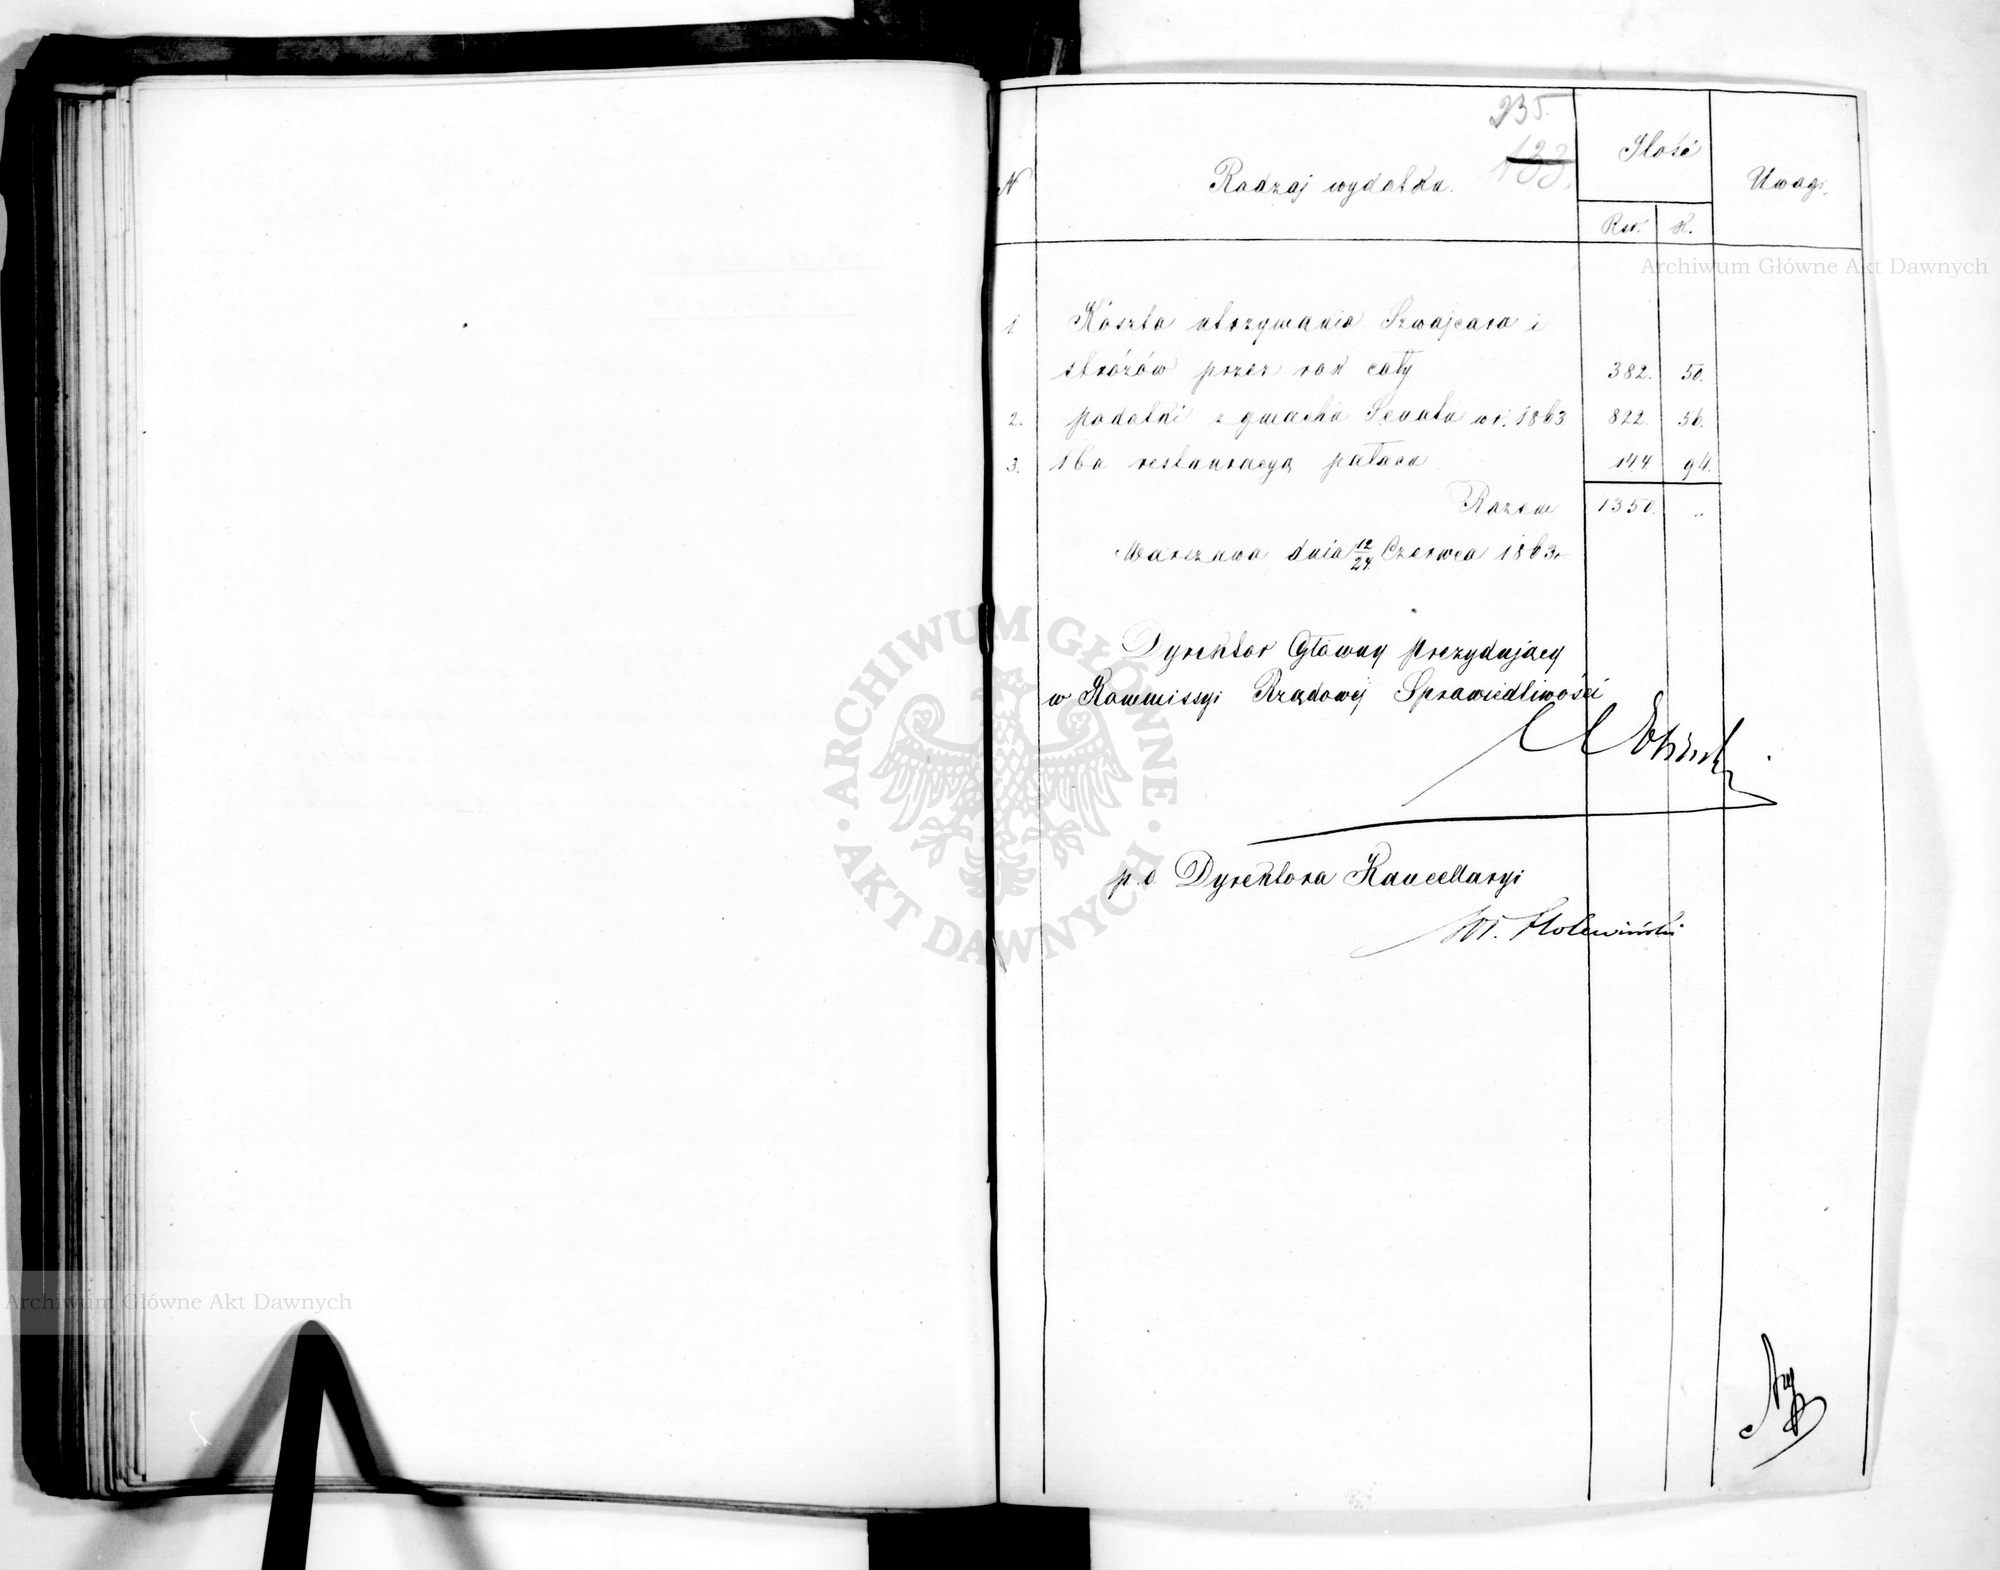 235.
133.
N
Rodzaj wydatku.
Ilość
Uwagi.
Rsr.
K.
1
Koszta utrzymania Szwajcara i
stróżów przez rok cały
382.
50.
2.
podatki z gmachu Senatu w r. 1863
822.
56.
3.
restauracyą pałacu
144
94.
Razem
1350.
"
Warszawa dnia 12/24 Czerwca 1863r
Dyrektor Główny Prezydujący
w Kommissyi Rządowej Sprawiedliwości
p.o Dyrektora Kancellaryi
Wł. Holewiński
Archiwum Główne Akt Dawnych
ARCHIWUM GŁÓWNE AKT DAWNYCH
Archiwum Główne Akt Dawnych